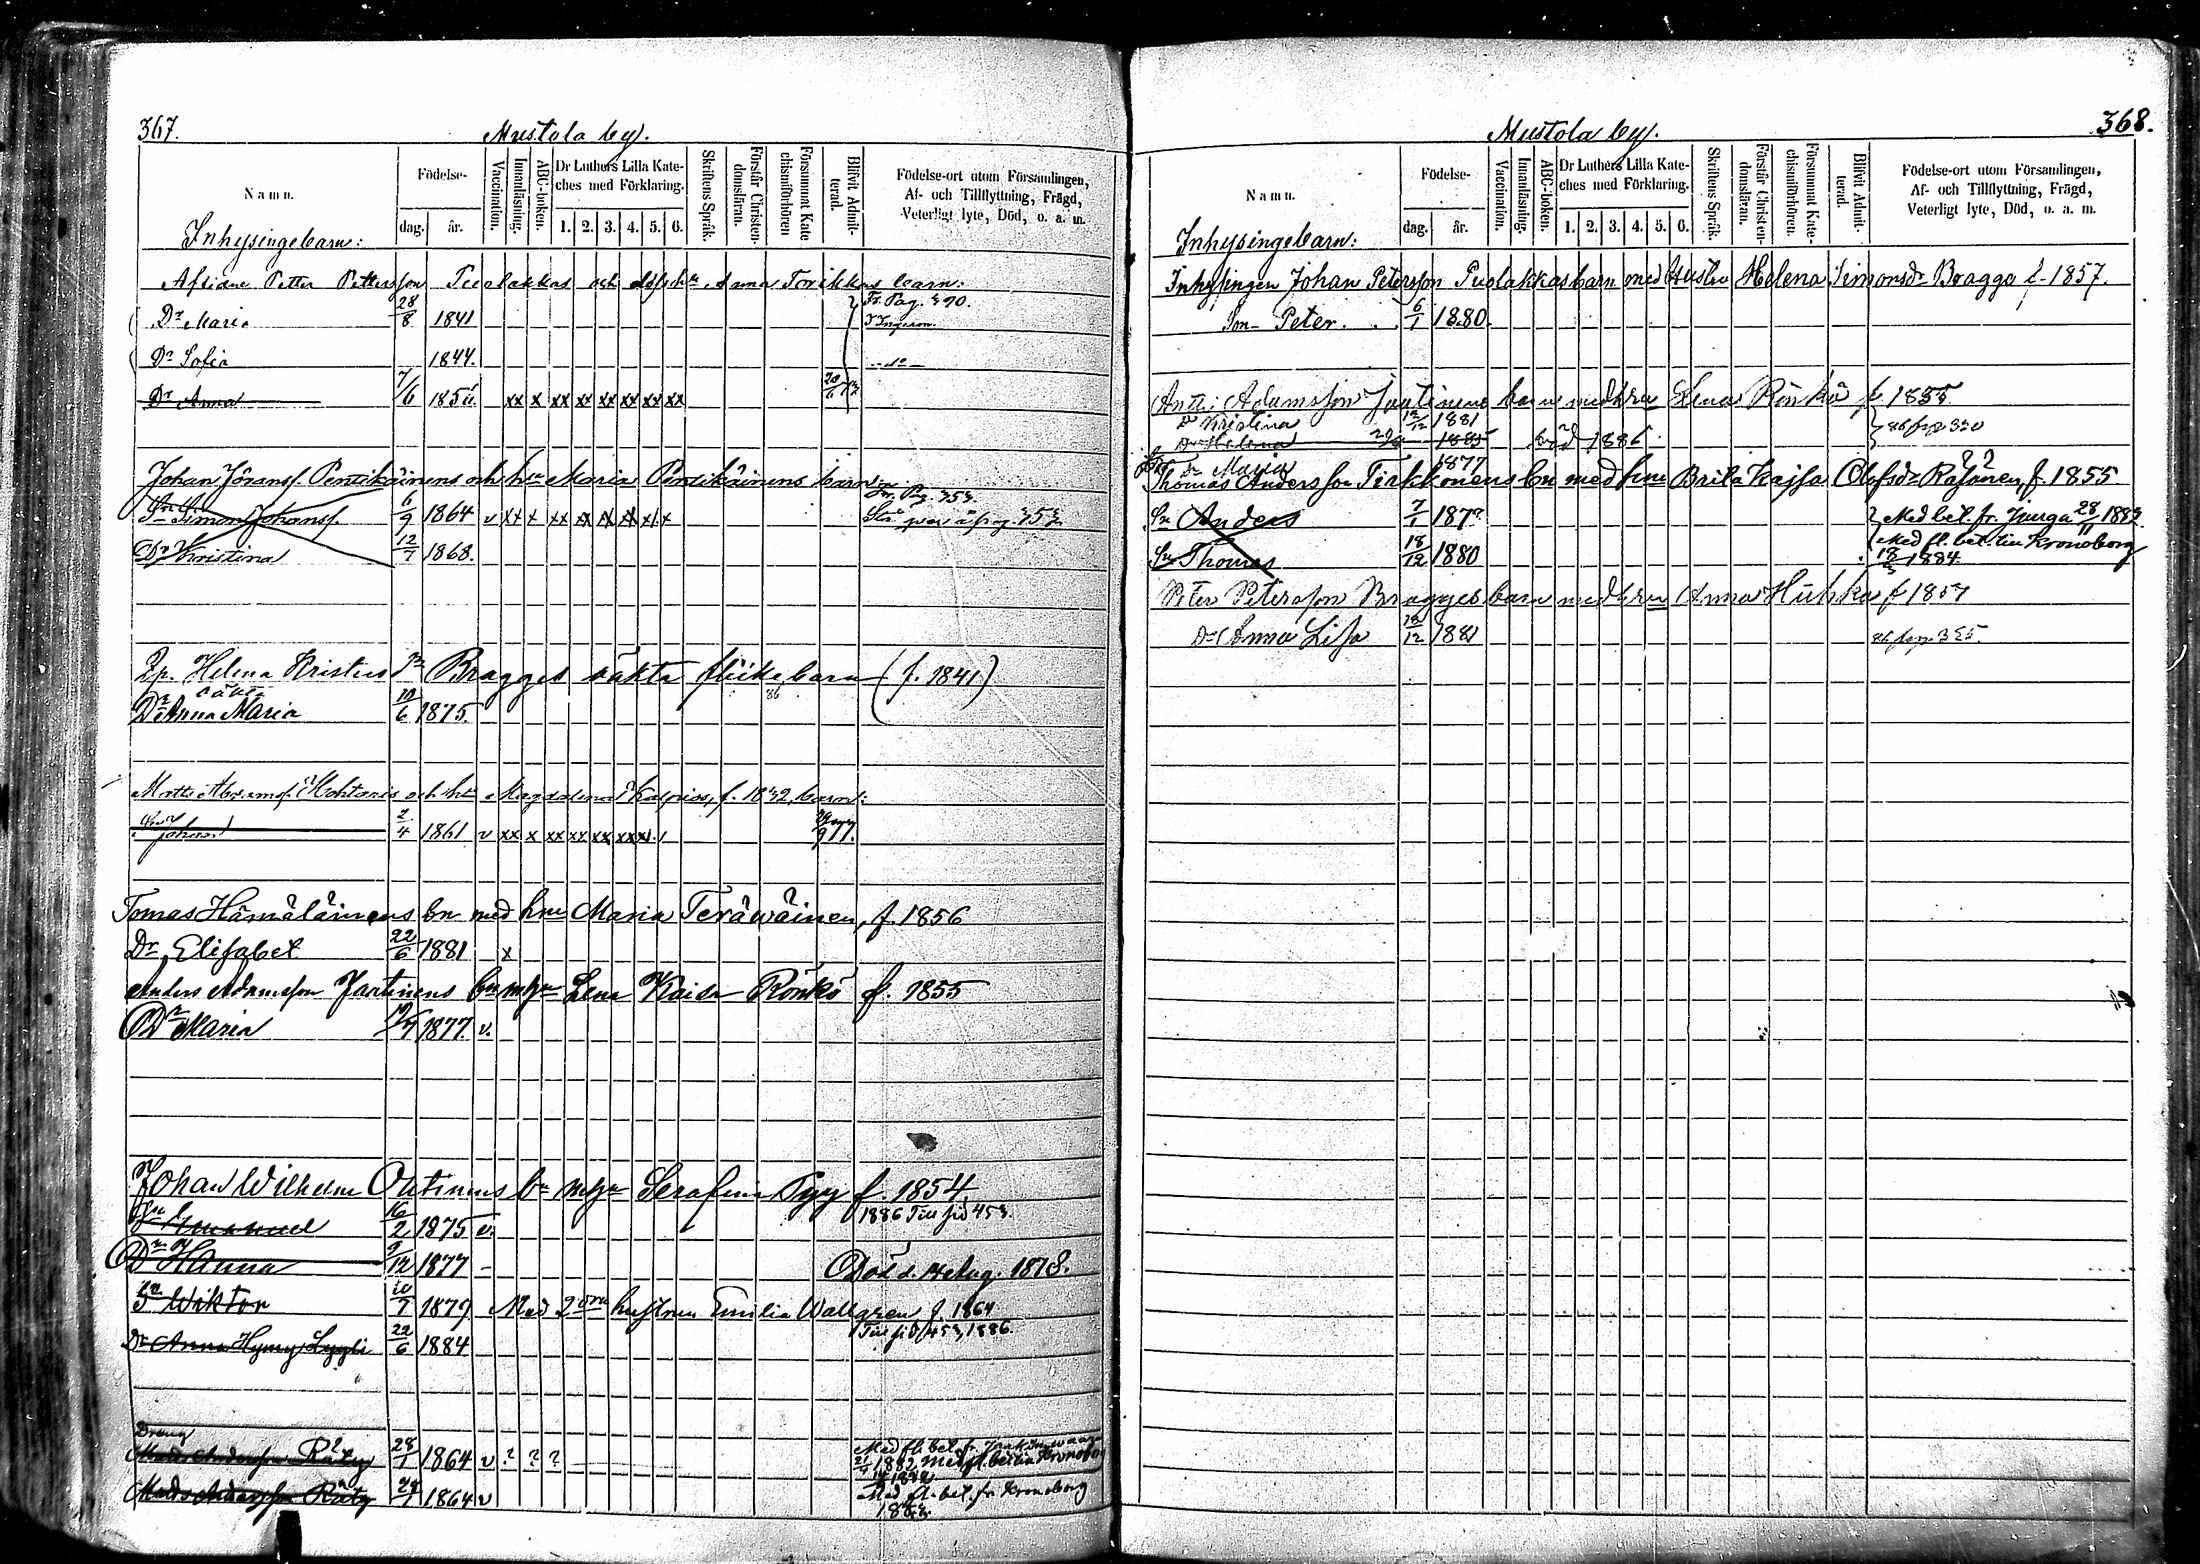 367.
Mustola by.
Namn.
Födelse-
dag.
år.
Vaccination.
Innanläsning.
ABC-boken.
Dr Luthers Lilla Kate-
ches med Förklaring.
1. 2. 3. 4. 5. 6.
Skriftens Språk.
Förstår Christen-
domsläran.
Försummat Kate
chismiförhören
Blifvit Admit-
terad.
Födelse-ort utom Församlingen,
Af- och Tillflyttning, Frägd,
Veterligt lyte, Död, o. a. m.
Inhysingebarn:
Petter Pettersson Puolakkas och Anna Torikkas barn:
Dr Maria 28/8 1841 Fr. Pag. 390.
Dr Sofia 1844.
Dr Anna 7/6 185 xx x xx xx xx xx xx xx
Johan Göransf. Pentikäinens och hu Maria Pentikäinens barn
Sn Simon Johansf. 6/9 1864 v xx x xx x x x x x Fr. Pag. 353.
Dr Kristina 12/7 1868.
Helena Bragges oäkta flickebarn (f. 1841)
oäkta
Dr Anna Maria 10/6 1875.
Matts och hu Magdalena f. 1832, barn:
Sn Johan 2/4 1861 v xx x xx xx xx xx x 77.
Tomas Hämäläinens bn med hu Maria Teräwäinen, f. 1856
Dr Elisabet 22/6 1881 x
Anders Adamsson Jaatinens bn m hu Lena Kaisa Rönkö f. 1855
Dr Maria 1877. v.
Johan Wilhelm Outinens bn m hu Serafina Tyy f. 1854.
Sn Emanuel 16/2 1875 v. 1886 Till sid 453.
Dr Hanna 9/12 1877 - Död d. 14 Aug. 1878.
Sn Wiktor 10/7 1879 Med 2dra hustrun Emilia Wallgren f. 1864
Dr Anna Hymy Lyyli 22/6 1884 Till sid 453, 1886.
Dräng
Mads Andersson Räty 28/1 1864 v ? ? ? Med fl. bet. fr.
1882, Med fl. bet. till Kronoborg
Mads Andersson Räty 28/1 1864 v Med fl. bet. fr Kronoborg
1883.
368.
Mustola by.
Namn.
Födelse-
dag.
år.
Vaccination.
Innanläsning.
ABC-boken.
Dr Luthers Lilla Kate-
ches med Förklaring.
1. 2. 3. 4. 5. 6.
Skriftens Språk.
Förstår Christen-
domsläran.
Försummat Kate-
chismiförhören.
Blifvit Admit-
terad.
Födelse-ort utom Församlingen,
Af- och Tillflyttning, Frägd,
Veterligt lyte, Död, o. a. m.
Inhysingebarn:
Inhysingen Johan Petersson Puolakkas barn med Hustru Helena Simonsdr Bragge f. 1857.
Son Peter. 6/1 1880.
Antti Adamsson Jaatinens barn med hru Lena Rönkö f. 1855
Dr Kristina 12/12 1881
Dr Helena 1885 död 1886.
Dr Maria 1877
Thomas Andersson Tirkkonens bn med hru Brita Kajsa Olofsdr Räsänen, f. 1855
Sn Anders 7/1 187 Med bet. fr. 28/11 1883.
Med fl. bet. till Kronoborg
Sn Thomas 18/12 1880 18/3 1884.
Peter Petersson Bragges barn med hru Anna Huhka f 1857
Dr Anna Lisa 18/12 1881